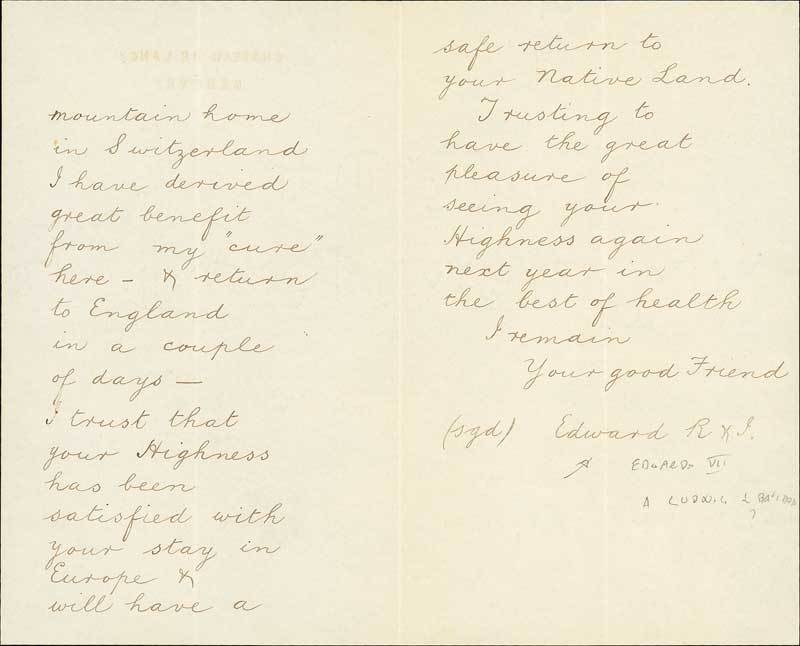 mountain home
in Switzerland
I have derived
great benefit
from my "cure"
here - & return
to England
in a couple
of days —
I trust that
your Highness
has been
satisfied with
your stay in
Europe &
will have a
safe return to
your Native Land.
Trusting to
have the great
pleasure of
seeing your
Highness again
next year in
the best of health
I remain
Your good Friend
(sgd) Edward R & I.
EDWARD VII
A
?